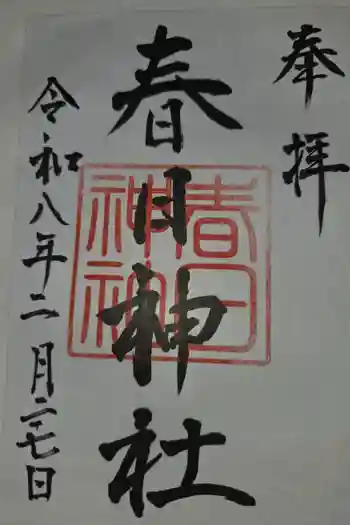 奉拝
春日神社
春日神社
令和八年二月二七日